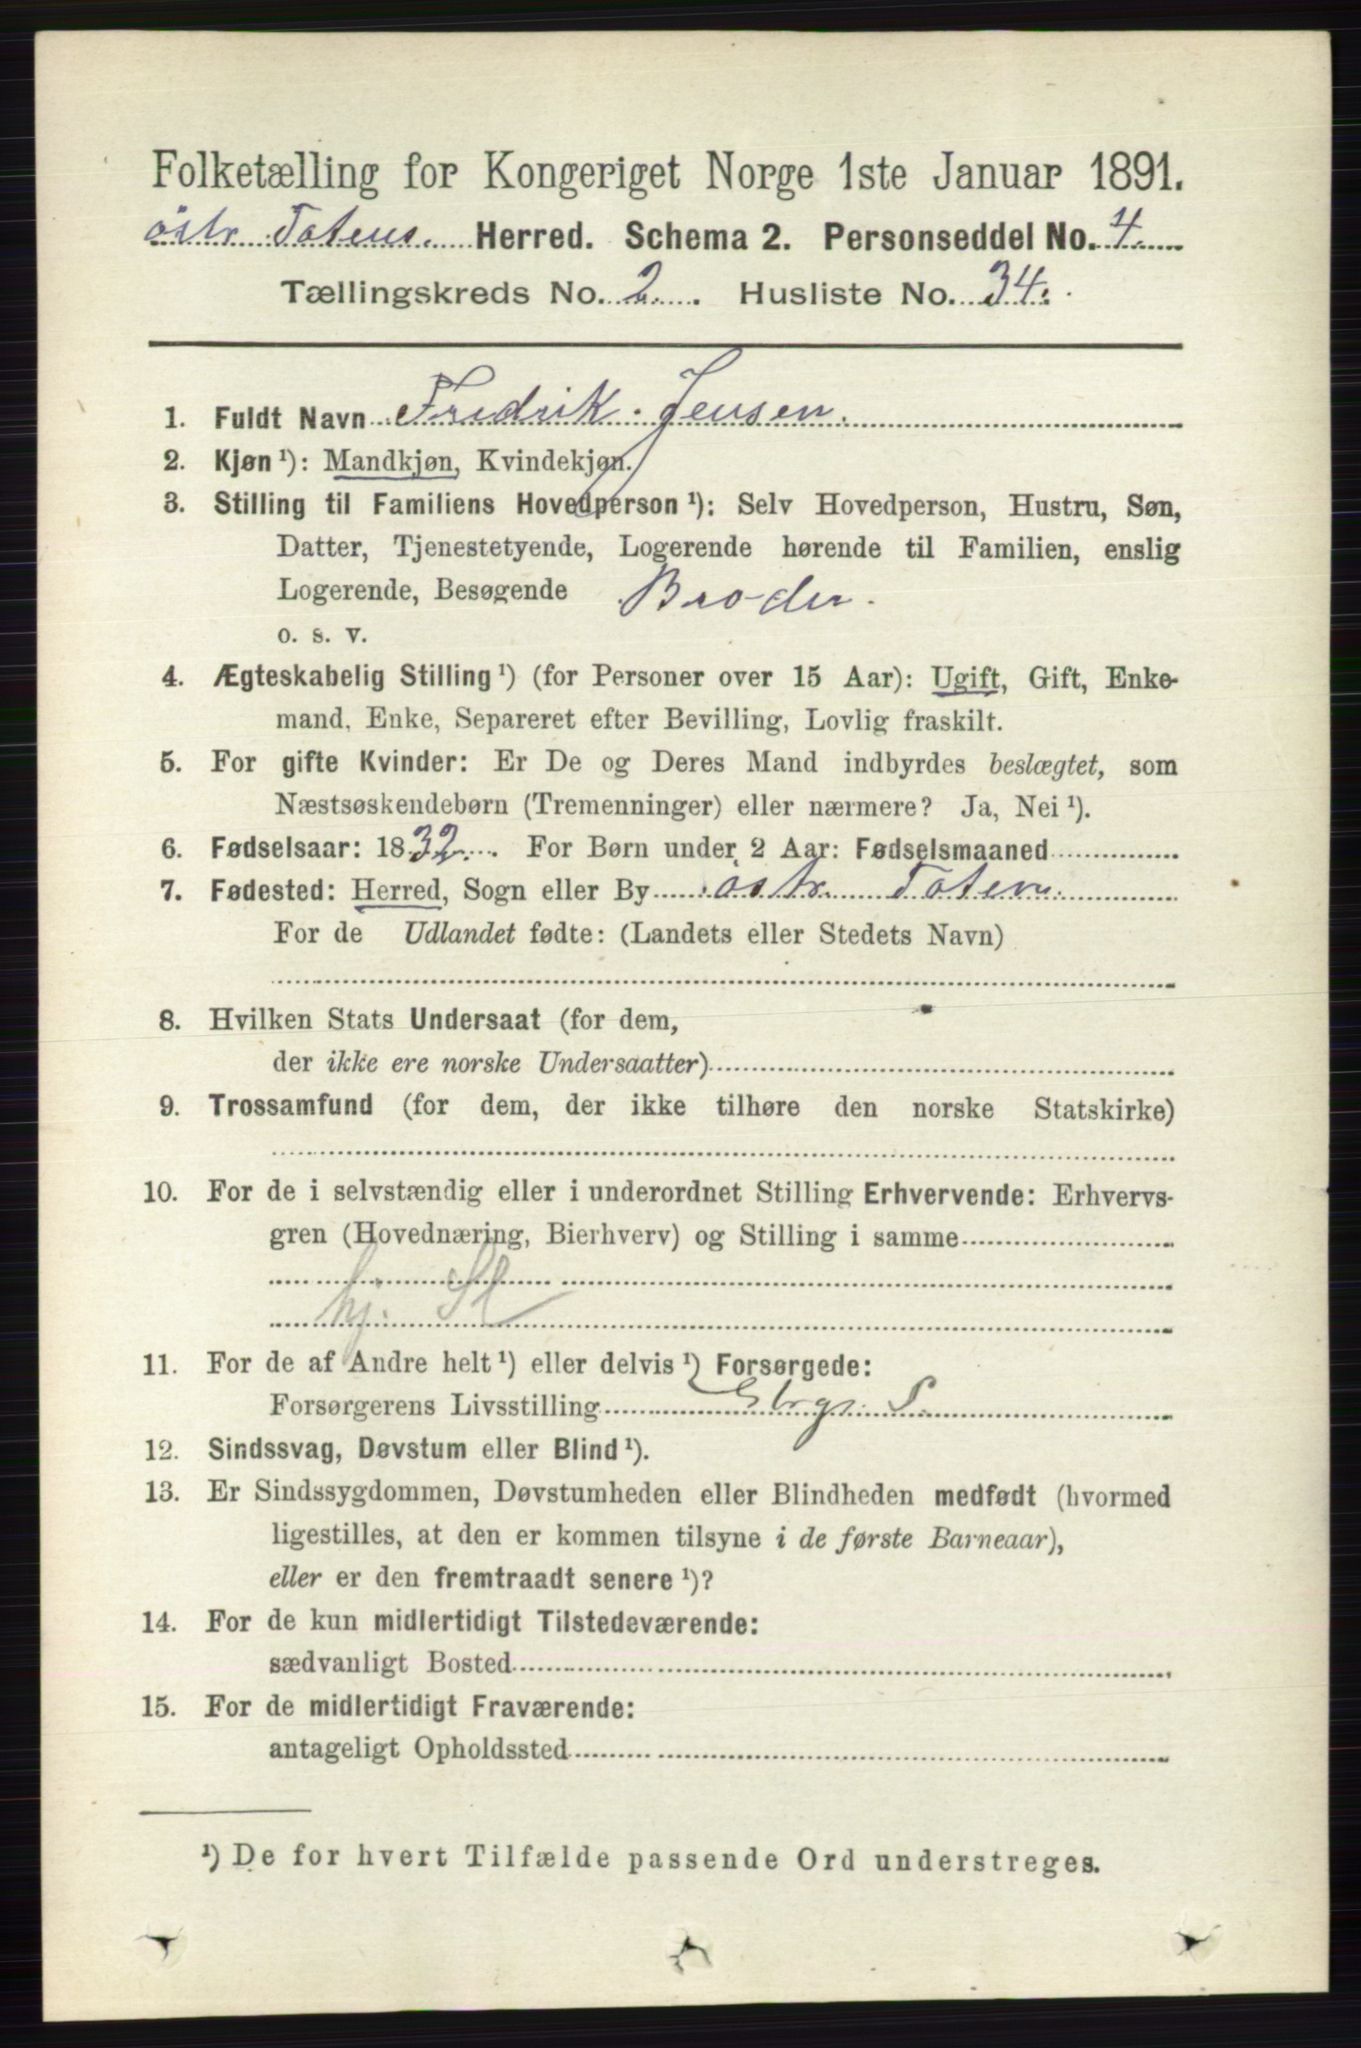 Folketælling for Kongeriget Norge 1ste Januar 1891.
östr. Totens Herred. Schema 2. Personseddel No. 4
Tællingskreds No. 2. Husliste No. 34.
1. Fuldt Navn Fredrik Jensen.
2. Kjøn ¹): Mandkjøn, Kvindekjøn.
3. Stilling til Familiens Hovedperson ¹): Selv Hovedperson, Hustru, Søn,
Datter, Tjenestetyende, Logerende hørende til Familien, enslig
Logerende, Besøgende Broder.
o. s. v.
4. Ægteskabelig Stilling ¹) (for Personer over 15 Aar): Ugift, Gift, Enke-
mand, Enke, Separeret efter Bevilling, Lovlig fraskilt.
5. For gifte Kvinder: Er De og Deres Mand indbyrdes beslægtet, som
Næstsøskendebørn (Tremenninger) eller nærmere? Ja, Nei ¹).
6. Fødselsaar: 1832. For Børn under 2 Aar: Fødselsmaaned
7. Fødested: Herred, Sogn eller By östr. Toten.
For de Udlandet fødte: (Landets eller Stedets Navn)
8. Hvilken Stats Undersaat (for dem,
der ikke ere norske Undersaatter)
9. Trossamfund (for dem, der ikke tilhøre den norske Statskirke)
10. For de i selvstændig eller i underordnet Stilling Erhvervende: Erhvervs-
gren (Hovednæring, Bierhverv) og Stilling i samme
hj. Sl
11. For de af Andre helt ¹) eller delvis ¹) Forsørgede:
Forsørgerens Livsstilling
12. Sindssvag, Døvstum eller Blind ¹).
13. Er Sindssygdommen, Døvstumheden eller Blindheden medfødt (hvormed
ligestilles, at den er kommen tilsyne i de første Barneaar),
eller er den fremtraadt senere ¹)?
14. For de kun midlertidigt Tilstedeværende:
sædvanligt Bosted
15. For de midlertidigt Fraværende:
antageligt Opholdssted
¹) De for hvert Tilfælde passende Ord understreges.